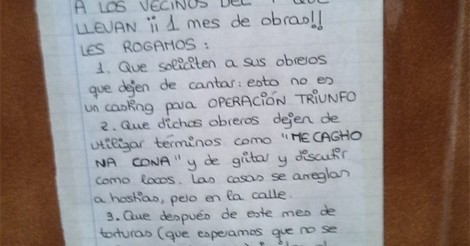 A LOS VECINOS DEL
LLEVAN ¡¡ 1 mes de obras!!
LES ROGAMOS :
1. Que soliciten a sus obreros
que dejen de cantar: esto no es
un casting para OPERACIÓN TRIUNFO
2. Que dichos obreros dejen de
utilizar términos como "ME CAGHO
NA CONA" y de gritar y discutir
como locos. Las cosas se arreglan
a hostias, pero en la calle.
3. Que después de este mes de
torturas (que esperamos que no se